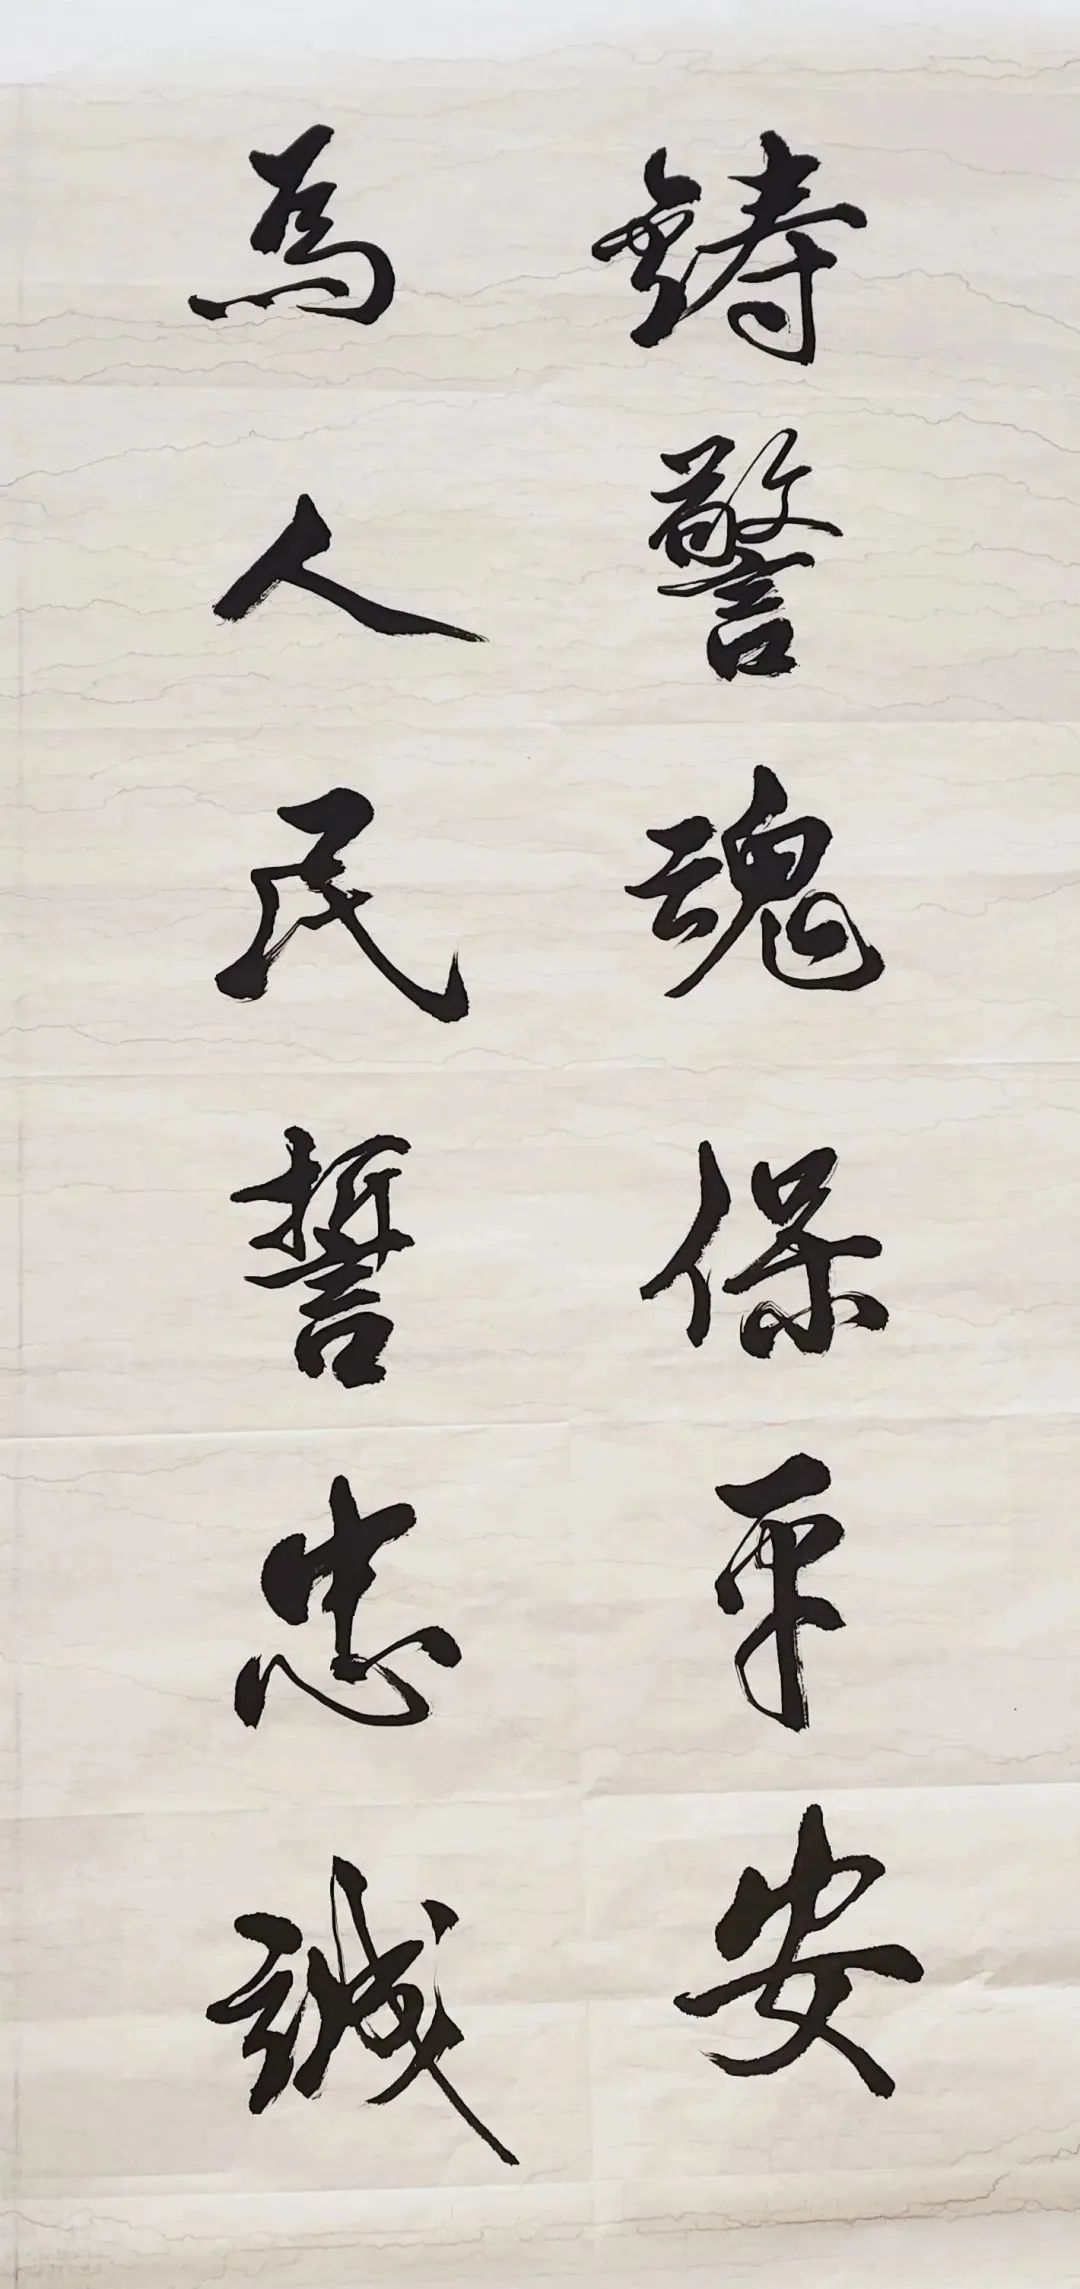 鋳警魂保平安
為人民誓忠誠